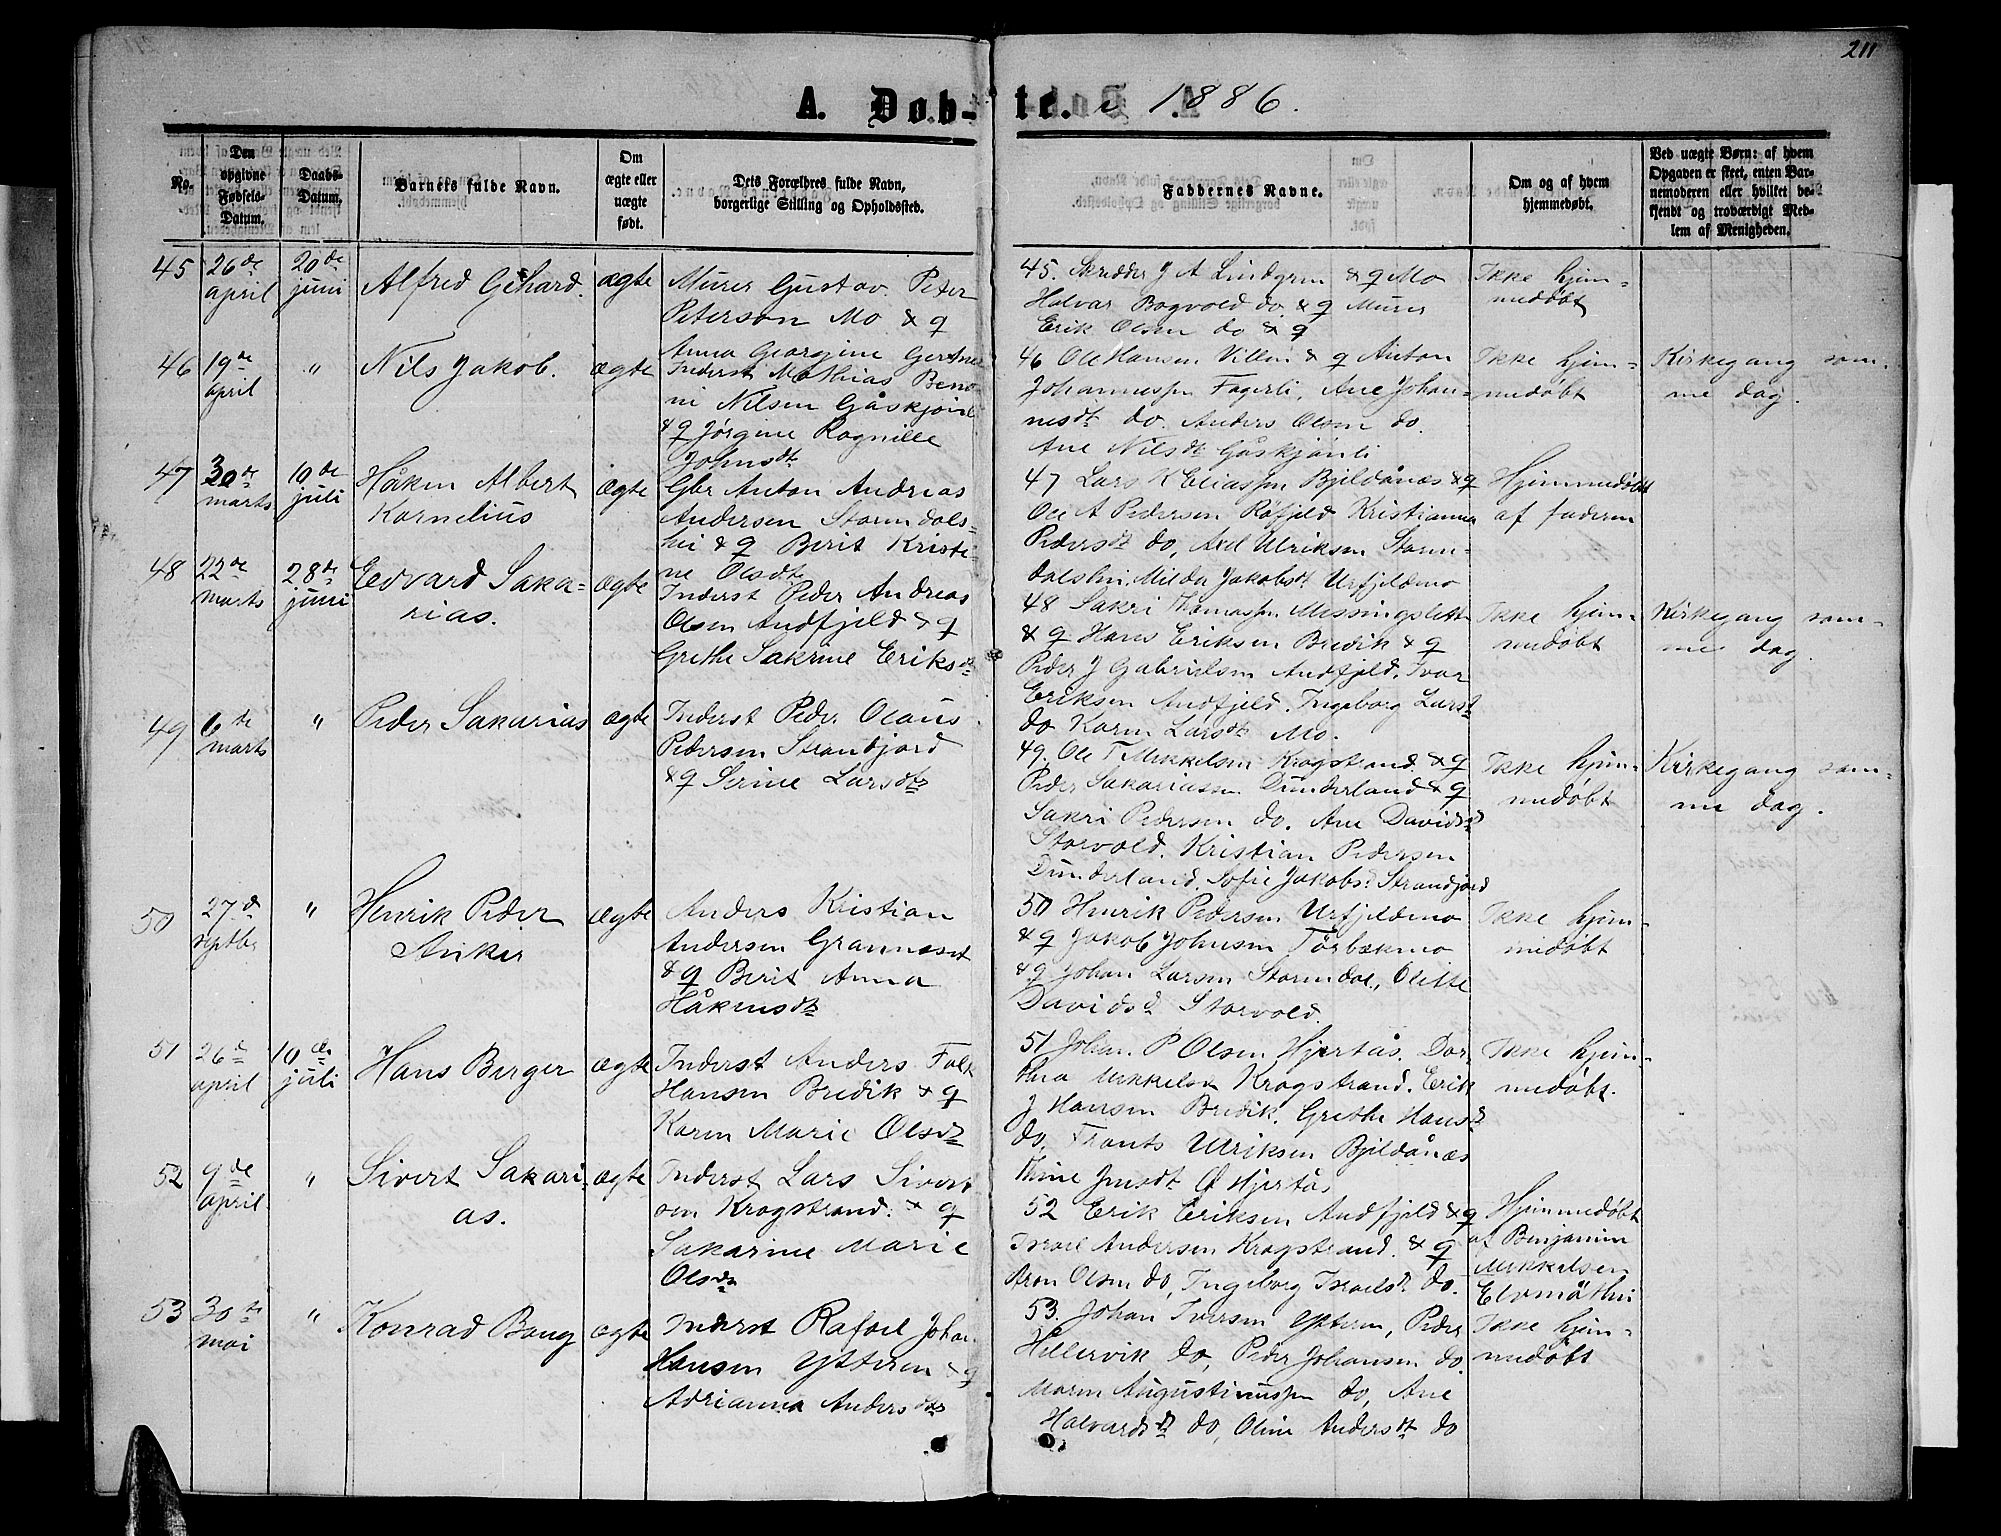 211
A. Døb-te. i 1886.
No.
Den opgivne Fødsels-Datum.
Daabs-Datum.
Barnets fulde Navn.
Om ægte eller uægte født.
Dets Forældres fulde Navn, borgerlige Stilling og Opholdssted.
Faddernes Navne.
Om og af hvem hjemmedøbt.
Ved uægte Børn: af hvem Opgaven er skeet, enten Barnemoderen eller hvilket bekjendt og troværdigt Medlem af Menigheden.
45 26de april 20de juni
Alfred Gehard. ægte
Murer Gustav Peter
Peterson Mo & q
Anna Georgine Gertine
45. Skrædder J A Lindgren & q Mo
Halvar Bogvold do. & q Murer
Erik Olsen do & q
Ikke hjem-
medøbt
46 19de april "
Nils Jakob. ægte
Inderst Mathias Beno-
ni Nilsen Gåskjønli
& q Jørgine Ragnille
Johnsdt
46 Ole Hansen Villen & q Anton
Johannessen Fagerli, Ane Johan-
nesdt do. Anders Olsen do.
Ane Nilsdt Gåskjønli
Ikke hjem-
medøbt
Kirkegang sam-
me dag.
47 30te marts 10de juli
Håken Albert
Kornelius
ægte
Gbr Anton Andreas
Andersen Stormdals-
hei & q Berit Kristi-
ne Olsdt
47 Lars K Eliassen Bjeldånæs & q
Ole A Pedersen Røfjeld Kristianna
Pedersdt do, Axel Ulriksen Storm-
dalshei. Milda Jakobsdt Urfjeldmo
Hjemmedøbt
af faderen
48 22de marts 28de juni
Edvard Saka-
rias.
ægte
Inderst Peder Andreas
Olsen Andfjeld & q
Grethe Sakrine Eriksdt
48 Sakri Thomassen Messingslett
& q Hans Eriksen Bredik & q
Peder J Gabrielsen Andfjeld. Ivar
Eriksen Andfjeld. Ingeborg Larsdt
do Karen Larsdt Mo.
Ikke hjem-
medøbt
Kirkegang sam-
me dag.
49 6te marts "
Peder Sakarias ægte
Inderst Peder Olaus
Pedersen Strandjord
& q Serine Larsdtr
49. Ole T Mikkelsen Krogstrand. & q
Peder Sakariassen Dunderland & q
Sakri Pedersen do. Ane Davidsd
Storvold. Kristian Pedersen
Dunderland. Sofie Jakobsd Strandjord
Ikke hjem-
medøbt
Kirkegang sam-
me dag.
50 27de septbr "
Henrik Peder
Anker
ægte
Anders Kristian
Andersen Grannæset
& q Berit Anna
Håkensdtr
50 Henrik Pedersen Urfjeldmo
& q Jakob Johnsen Tørbækmo
& q Johan Larsen Stormdal, Olette
Davidsd Storvold.
Ikke hjem-
medøbt
51 26de april 10de juli
Hans Berger ægte
Inderst Anders Falk
Hansen Bredik & q
Karen Marie Olsdt
51 Johan P Olsen Hjertås. Dor-
thea Mikkelsd Krogstrand. Erik
J Hansen Bredik. Grethe Hansd
do, Frants Ulriksen Bjeldånæs
Ikke hjem-
medøbt.
52 9de april "
Sivert Sakari-
as.
ægte
Inderst Lars Sivert-
sen Krogstrand. & q
Sakarine Marie
Olsdtr
52 Erik Eriksen Andfjeld & q
Israel Andersen Krogstrand. & q
Aron Olsen do, Ingeborg Israelsd do.
Hjemmedøbt
af Benjamin
Mikkelsen
53 30te mai "
Konrad Baug ægte
Inderst Rafael Johan
Hansen Ytteren & q
Adrianna Andersdtr
53. Johan Iversen Ytteren, Peder
Hellervik do, Peder Johansen do.
Maren Augustinussen do, Ane
Halvardsdt do, Oline Andersdt do
Ikke hjem-
medøbt